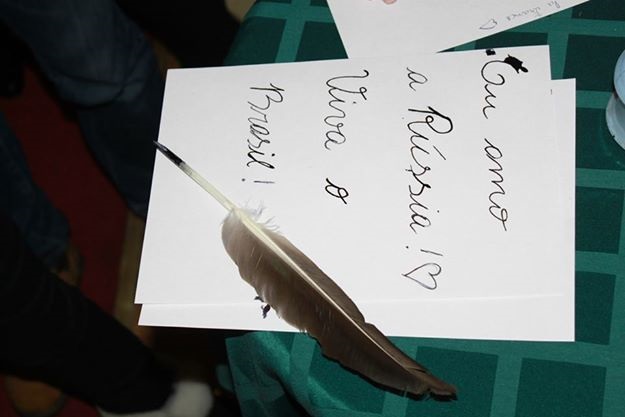 Eu amo
a Rússia! ♡
Viva o
Brasil!